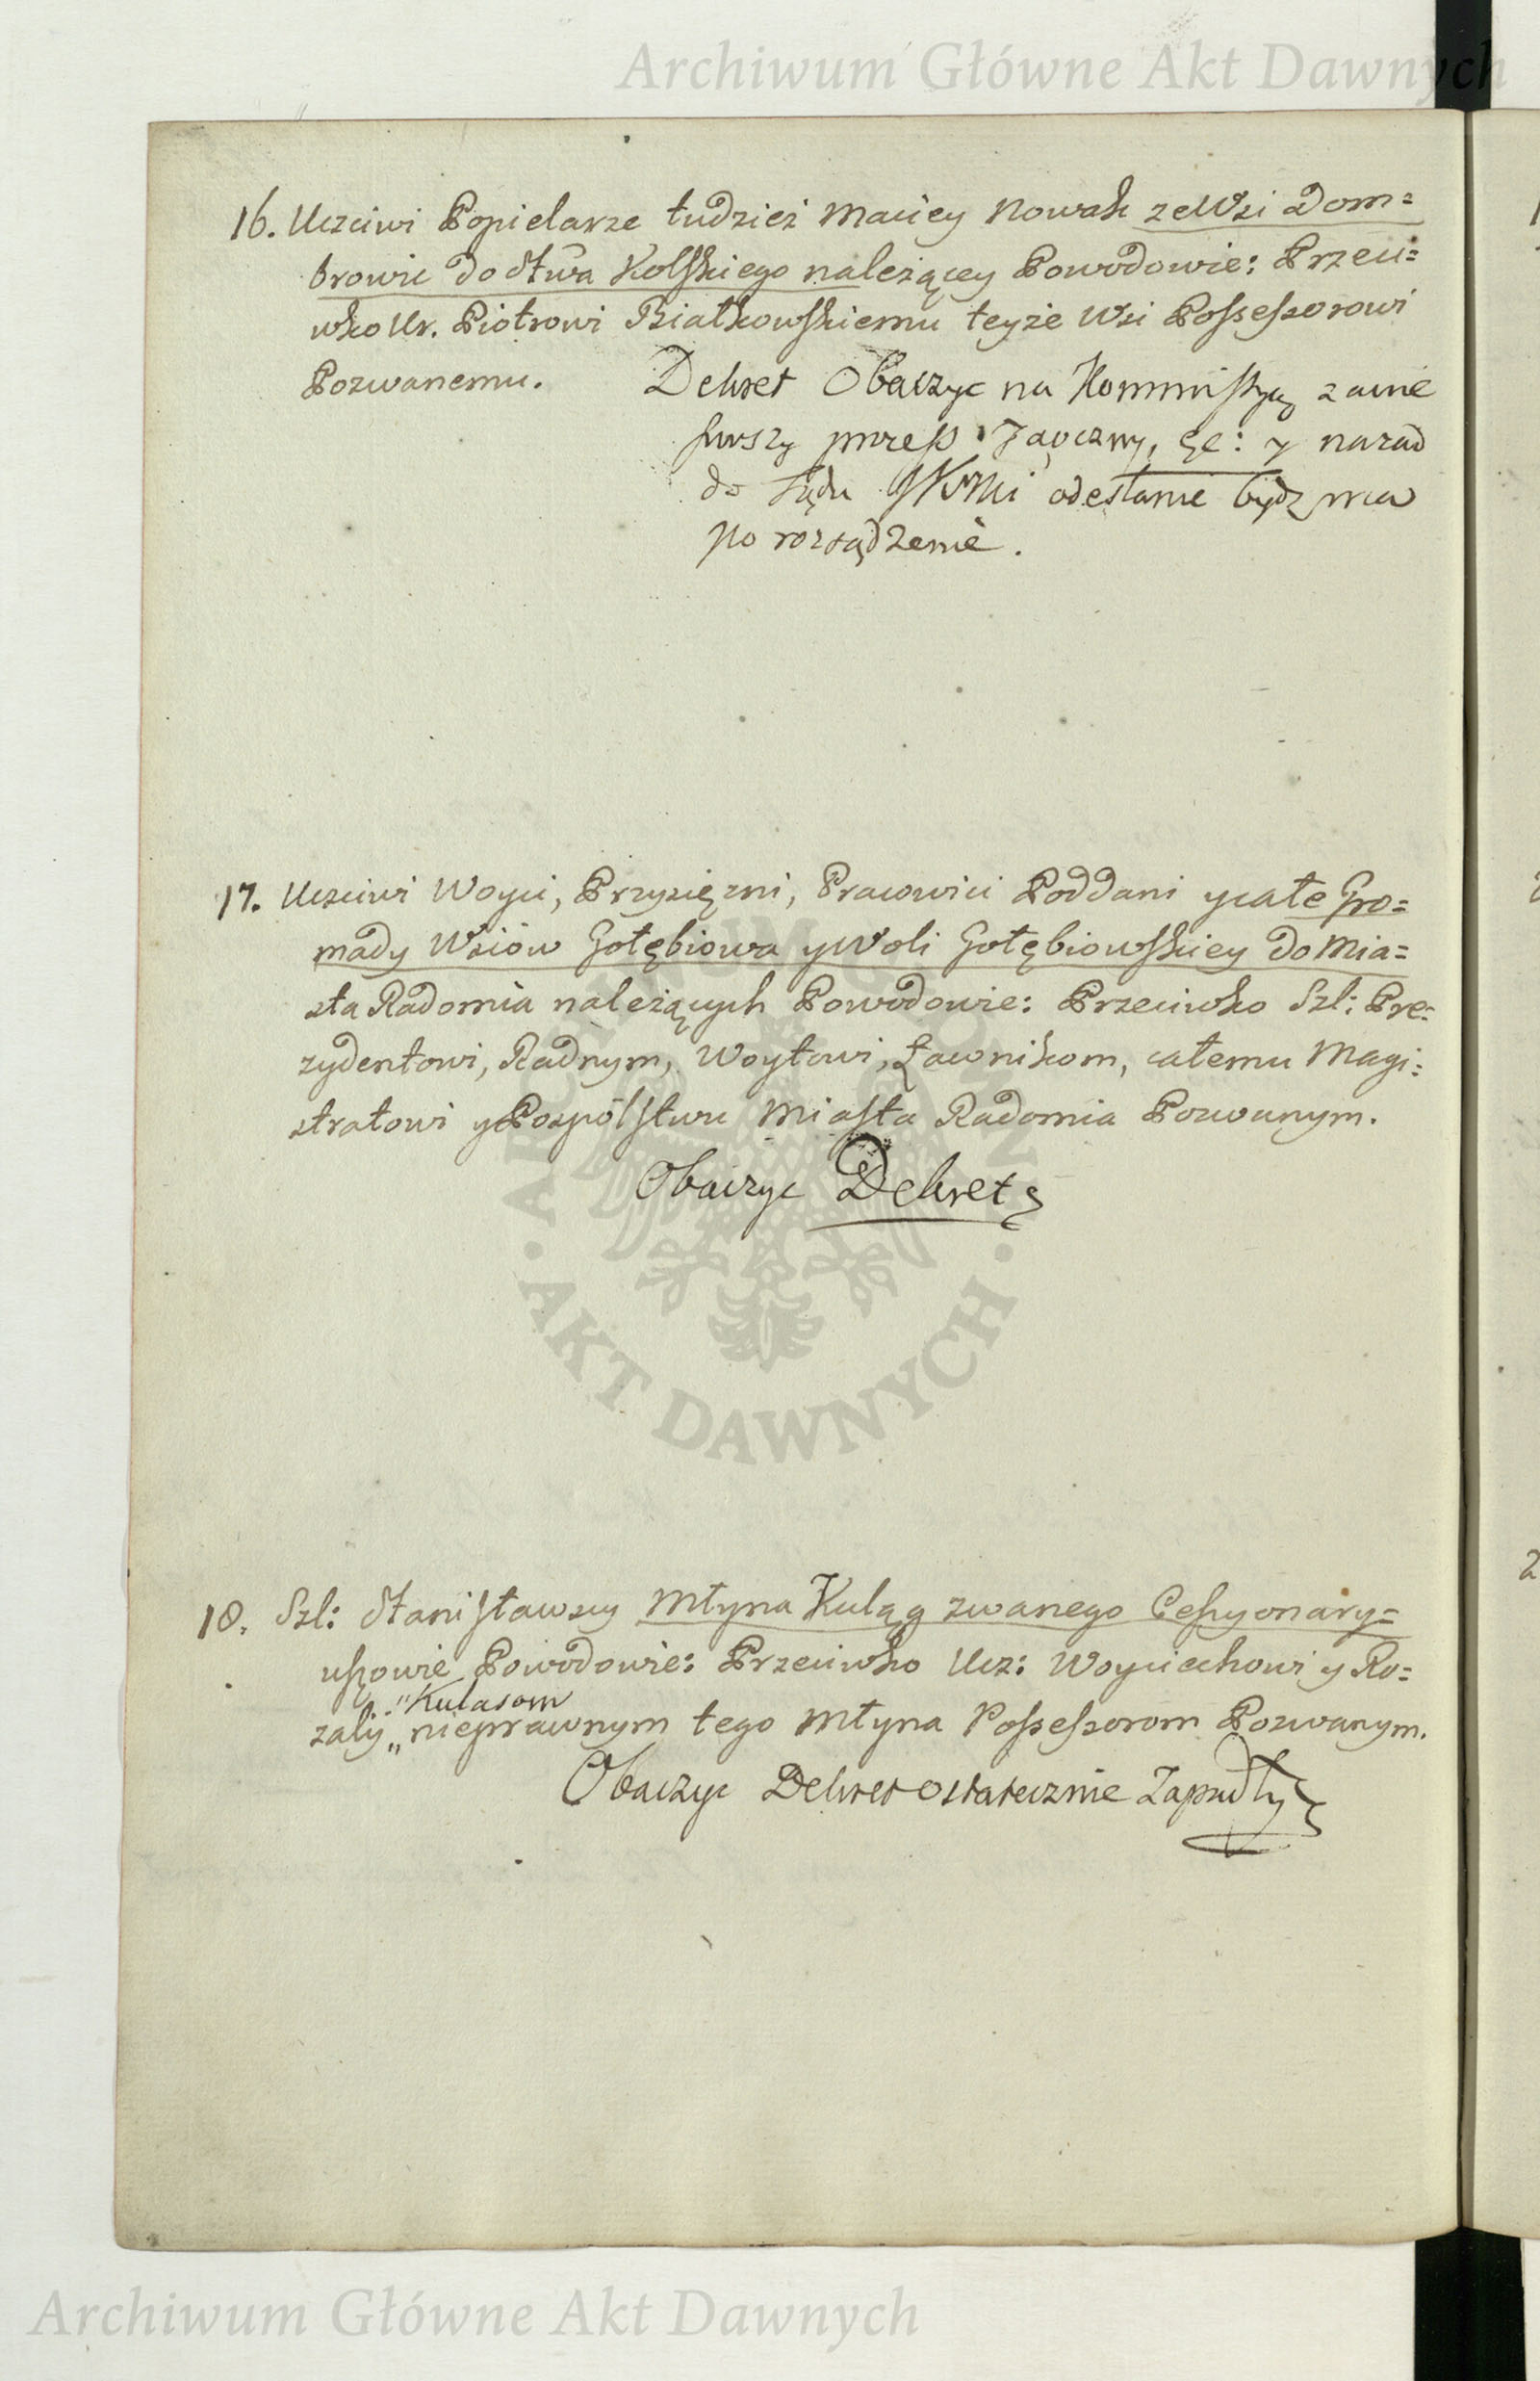 Archiwum Główne Akt Dawnych
16. Uczciwi Popielarze tudziez Maciey Nowak ze Wsi Dom=
browic do Stwa Kolskiego należącey Powodowie: Przeci=
wko Ur. Piotrowi Białkowskiemu teyże Wsi Possessorowi
Pozwanemu.
Dekret Obaczyc na Kommissyą zawie
y narad
do Sądu odesłanie bydz ma
po rozsądzenie.
17. Uczciwi Woyci, Przysięzni, Pracowici Poddani y całe Gro=
mady Wsiów Gołębiowa y Woli Gołębiowskiey do Mia=
sta Radomia należących Powodowie: Przeciwko Szl: Pre=
zydentowi, Radnym, Woytowi, Ławnikom, całemu Magi=
stratowi y Pospólstwu Miasta Radomia Pozwanym.
Obaczyc Dekret
18. Szl: Stanisławscy Młyna Kuląg zwanego Cessyonary=
uszowie Powodowie: Przeciwko Ucz: Woyciechowi y Ro=
"Kulasom
zalij „ nieprawnym tego Młyna Possessorom Pozwanym.
Obaczyc Dekret ostatecznie Zapadły
ARCHIWUM GŁÓWNE
· AKT DAWNYCH ·
Archiwum Główne Akt Dawnych